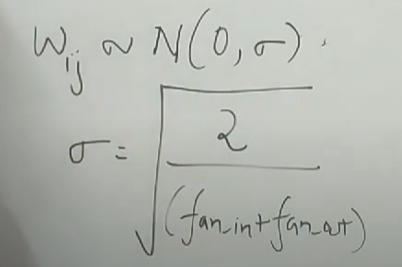 W_ij ~ N(0, σ).
σ = √(2 / (fan_in + fan_out))